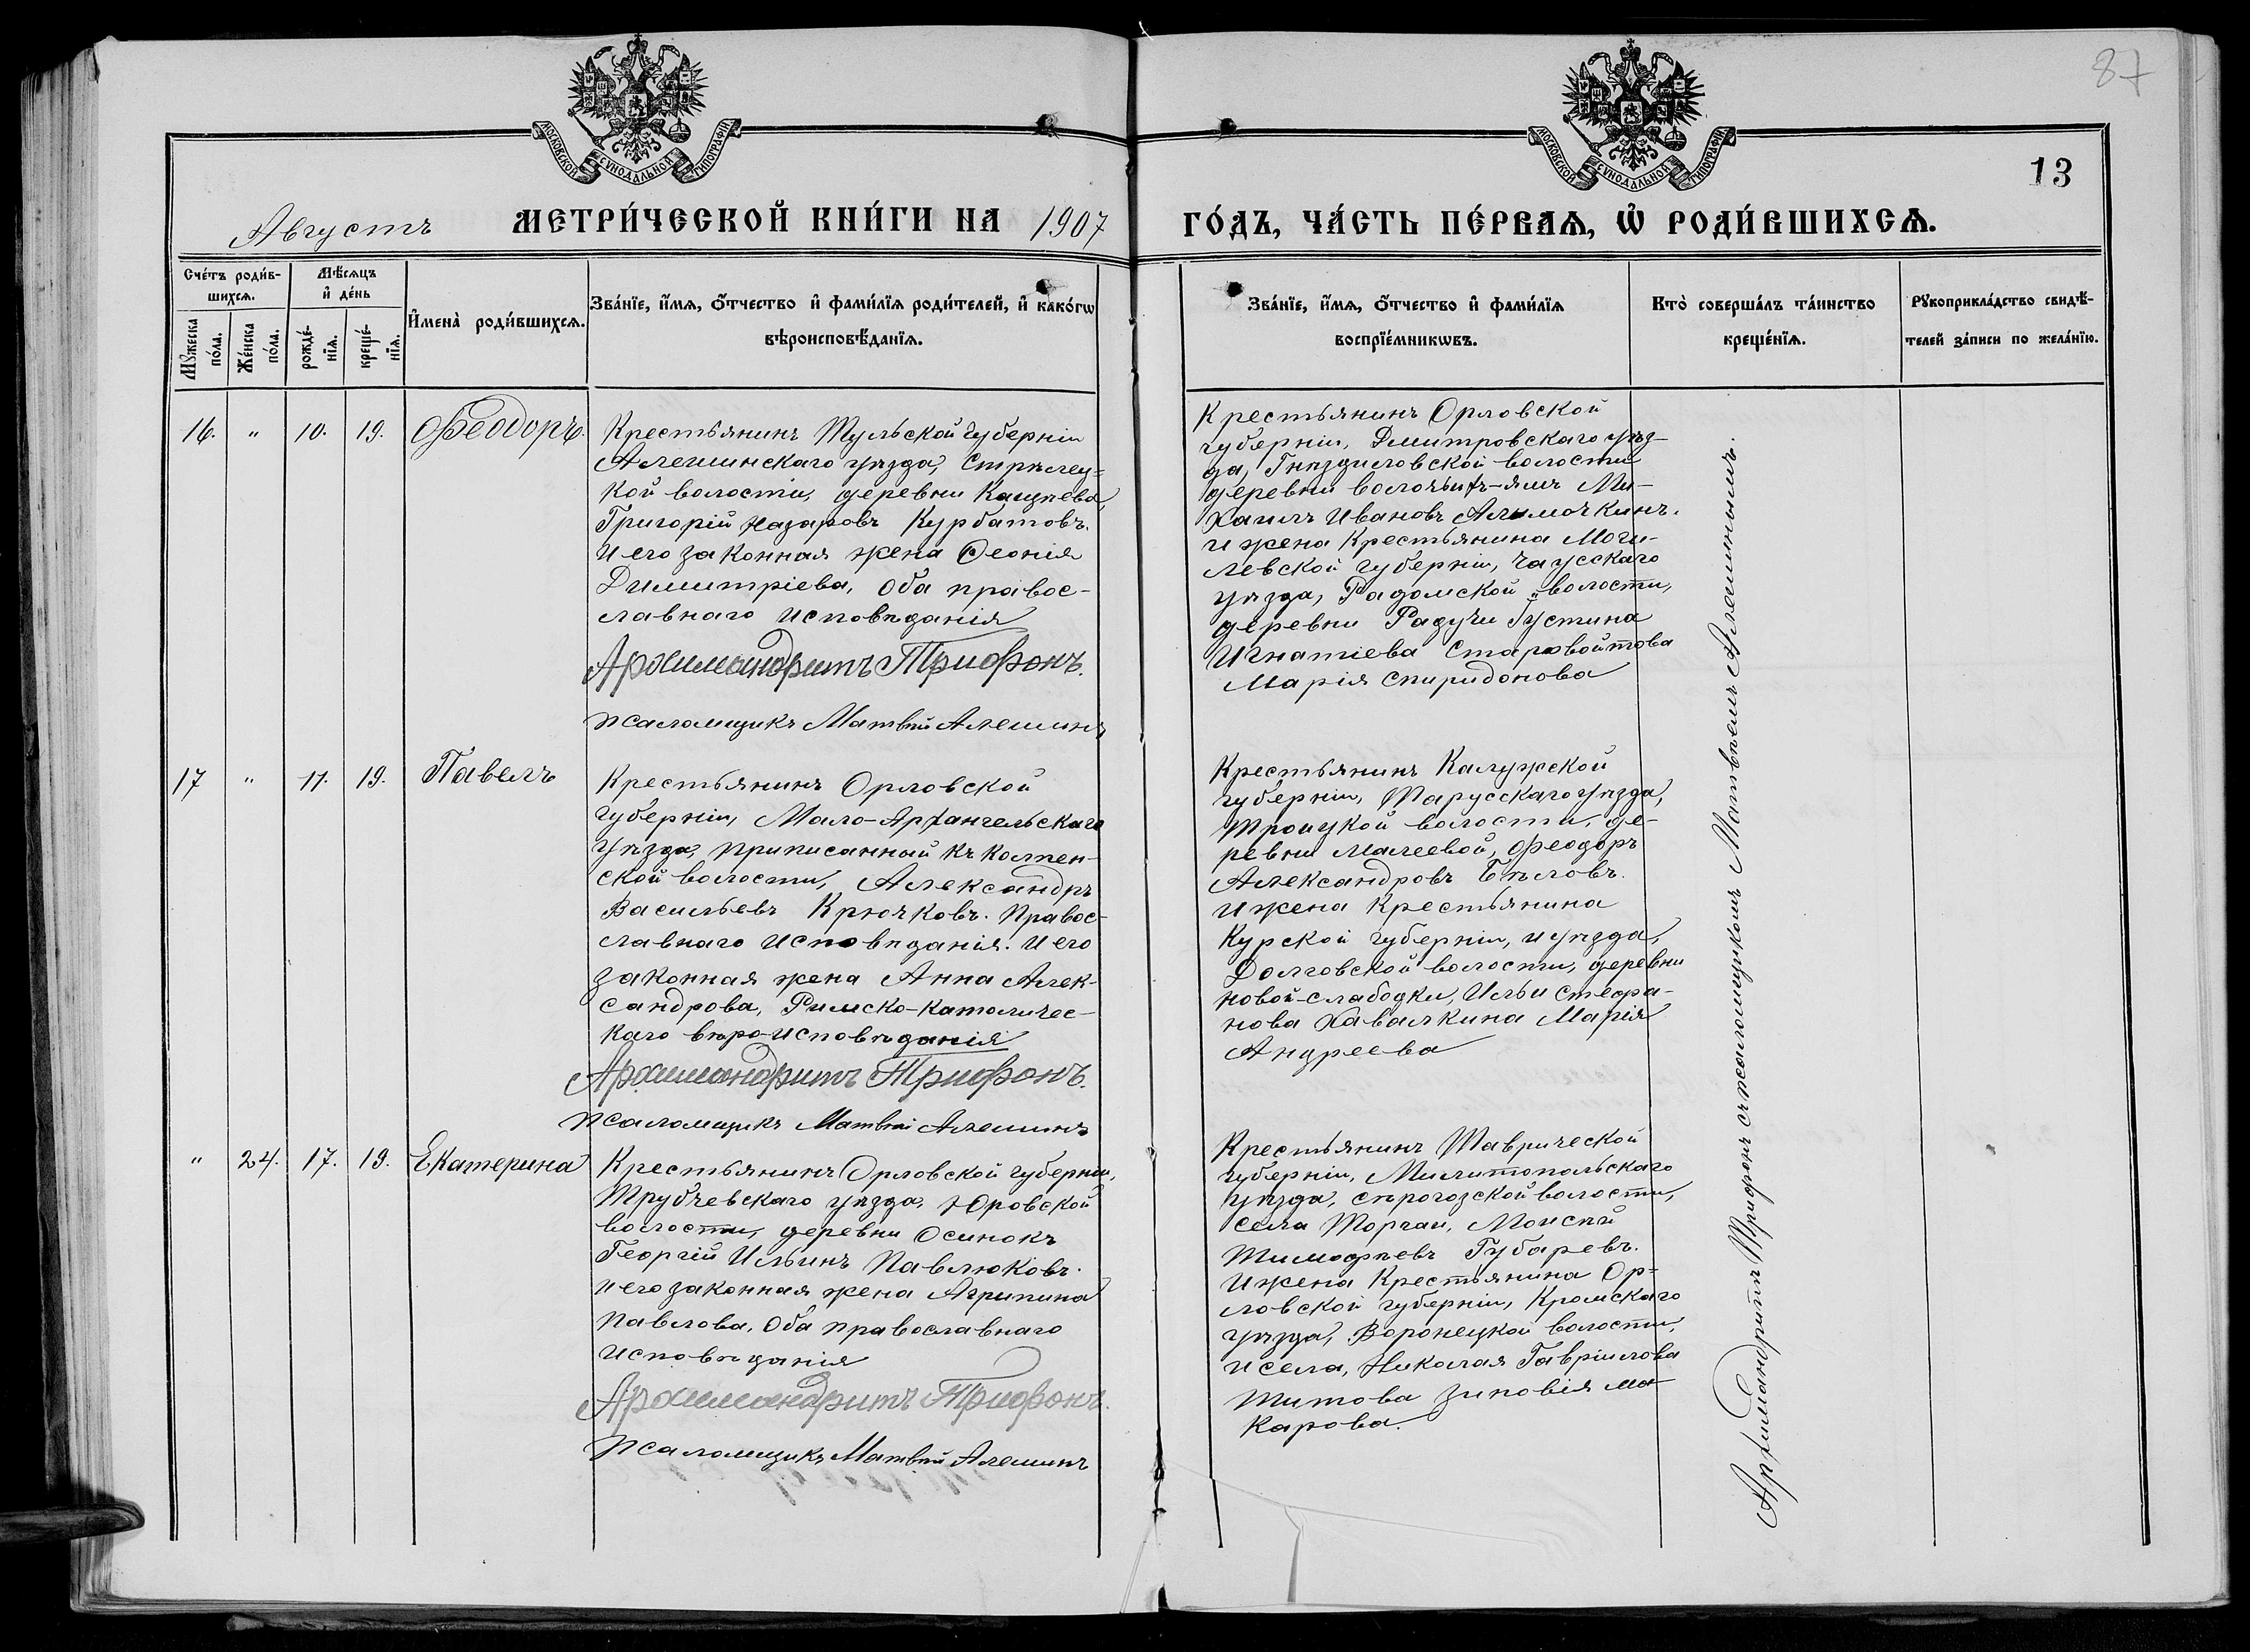 87
13
МОСКОВСКОЙ СѴНОДАЛЬНОЙ ТИПОГРАФІИ
МОСКОВСКОЙ СѴНОДАЛЬНОЙ ТИПОГРАФІИ
Августъ МЕТРИ́ЧЕСКОЙ КНИ́ГИ НА 1907 ГО́ДЪ, ЧА́СТЬ ПЕ́РВАѦ, Ѡ҆ РОДИ́ВШИХСѦ.
Сче́тъ роди́в-
шихсѧ.
Мꙋ́жеска
по́ла.
Же́нска
по́ла.
Мѣ́сѧцъ
и҆ де́нь
рожде́-
нїѧ.
креще́-
нїѧ.
И҆мена̀ роди́вшихсѧ.
Зва́нїе, и҆́мѧ, ѻ҆́тчество и҆ фами́лїѧ роди́телей, и҆ како́гѡ
вѣроисповѣ́данїѧ.
Зва́нїе, и҆́мѧ, ѻ҆́тчество и҆ фами́лїѧ
воспрїе́мникѡвъ.
Кто̀ соверша́лъ та́инство
креще́нїѧ.
Рꙋкоприкла́дство свидѣ́-
телей за́писи по жела́нїю.
16. " 10. 19. Ѳеодоръ.
Крестьянинъ Тульской губерніи
Алешинскаго уѣзда, Стрѣлец=
кой волости, деревни Кащѣева,
Григорій Назаровъ Курбатовъ.
И его законная жена Ѳеонія
Димитріева, Оба правос-
славнаго исповѣданія
Архимандритъ Трифонъ.
Псаломщикъ Матвѣй Алешинъ
Крестьянинъ Орловской
губерніи, Дмитровскаго уѣз-
да, Гнѣздиловской волости
деревни Волочьихъ-ямъ Ми-
хаилъ Ивановъ Алимочкинъ.
и жена Крестьянина Моги-
левской губерніи, Чаусскаго
уѣзда, Радомской волости,
деревни Радучи Густина
Игнатіева Старовойтова
Марія Спиридонова
17 " 11. 19. Павелъ
Крестьянинъ Орловской
губерніи, Мало-Архангельскаго
уѣзда, приписанный къ Колпен-
ской волости, Александръ
Васильевъ Крючковъ. Правос-
славнаго исповѣданія. И его
законная жена Анна Алек-
сандрова, Римско-католичес-
каго вѣроисповѣданія
Архимандритъ Трифонъ.
Псаломщикъ Матвѣй Алешинъ
Крестьянинъ Калужской
губерніи, Тарусскаго уѣзда,
Троицкой волости, де-
ревни Малеевой, Ѳеодоръ
Александровъ Бѣловъ.
И жена Крестьянина
Курской губерніи, и уѣзда,
Долговской волости, деревни
новой-слабодки, Ильи Стефа-
нова Хавалкина Марія
Андреева
" 24. 17. 19. Екатерина
Крестьянинъ Орловской губерніи,
Трубчевскаго уѣзда, Юровской
волости, деревни Осинокъ
Георгій Ильинъ Павлюковъ.
и его законная жена Агрипина
Павлова, Оба православнаго
исповѣданія
Архимандритъ Трифонъ.
Псаломщикъ Матвѣй Алешинъ
Крестьянинъ Таврической
губерніи, Милитопольскаго
уѣзда, сѣрогозской волости,
села Торгаи, Моисѣй
Тимофѣевъ Губаревъ.
И жена Крестьянина Ор=
ловской губерніи, Кромскаго
уѣзда, Воронецкой волости,
и села, Николая Гавріилова
Титова Зиновія Ма-
карова.
Архимандритъ Трифонъ съ псаломщикомъ Матвѣемъ Алешинымъ.